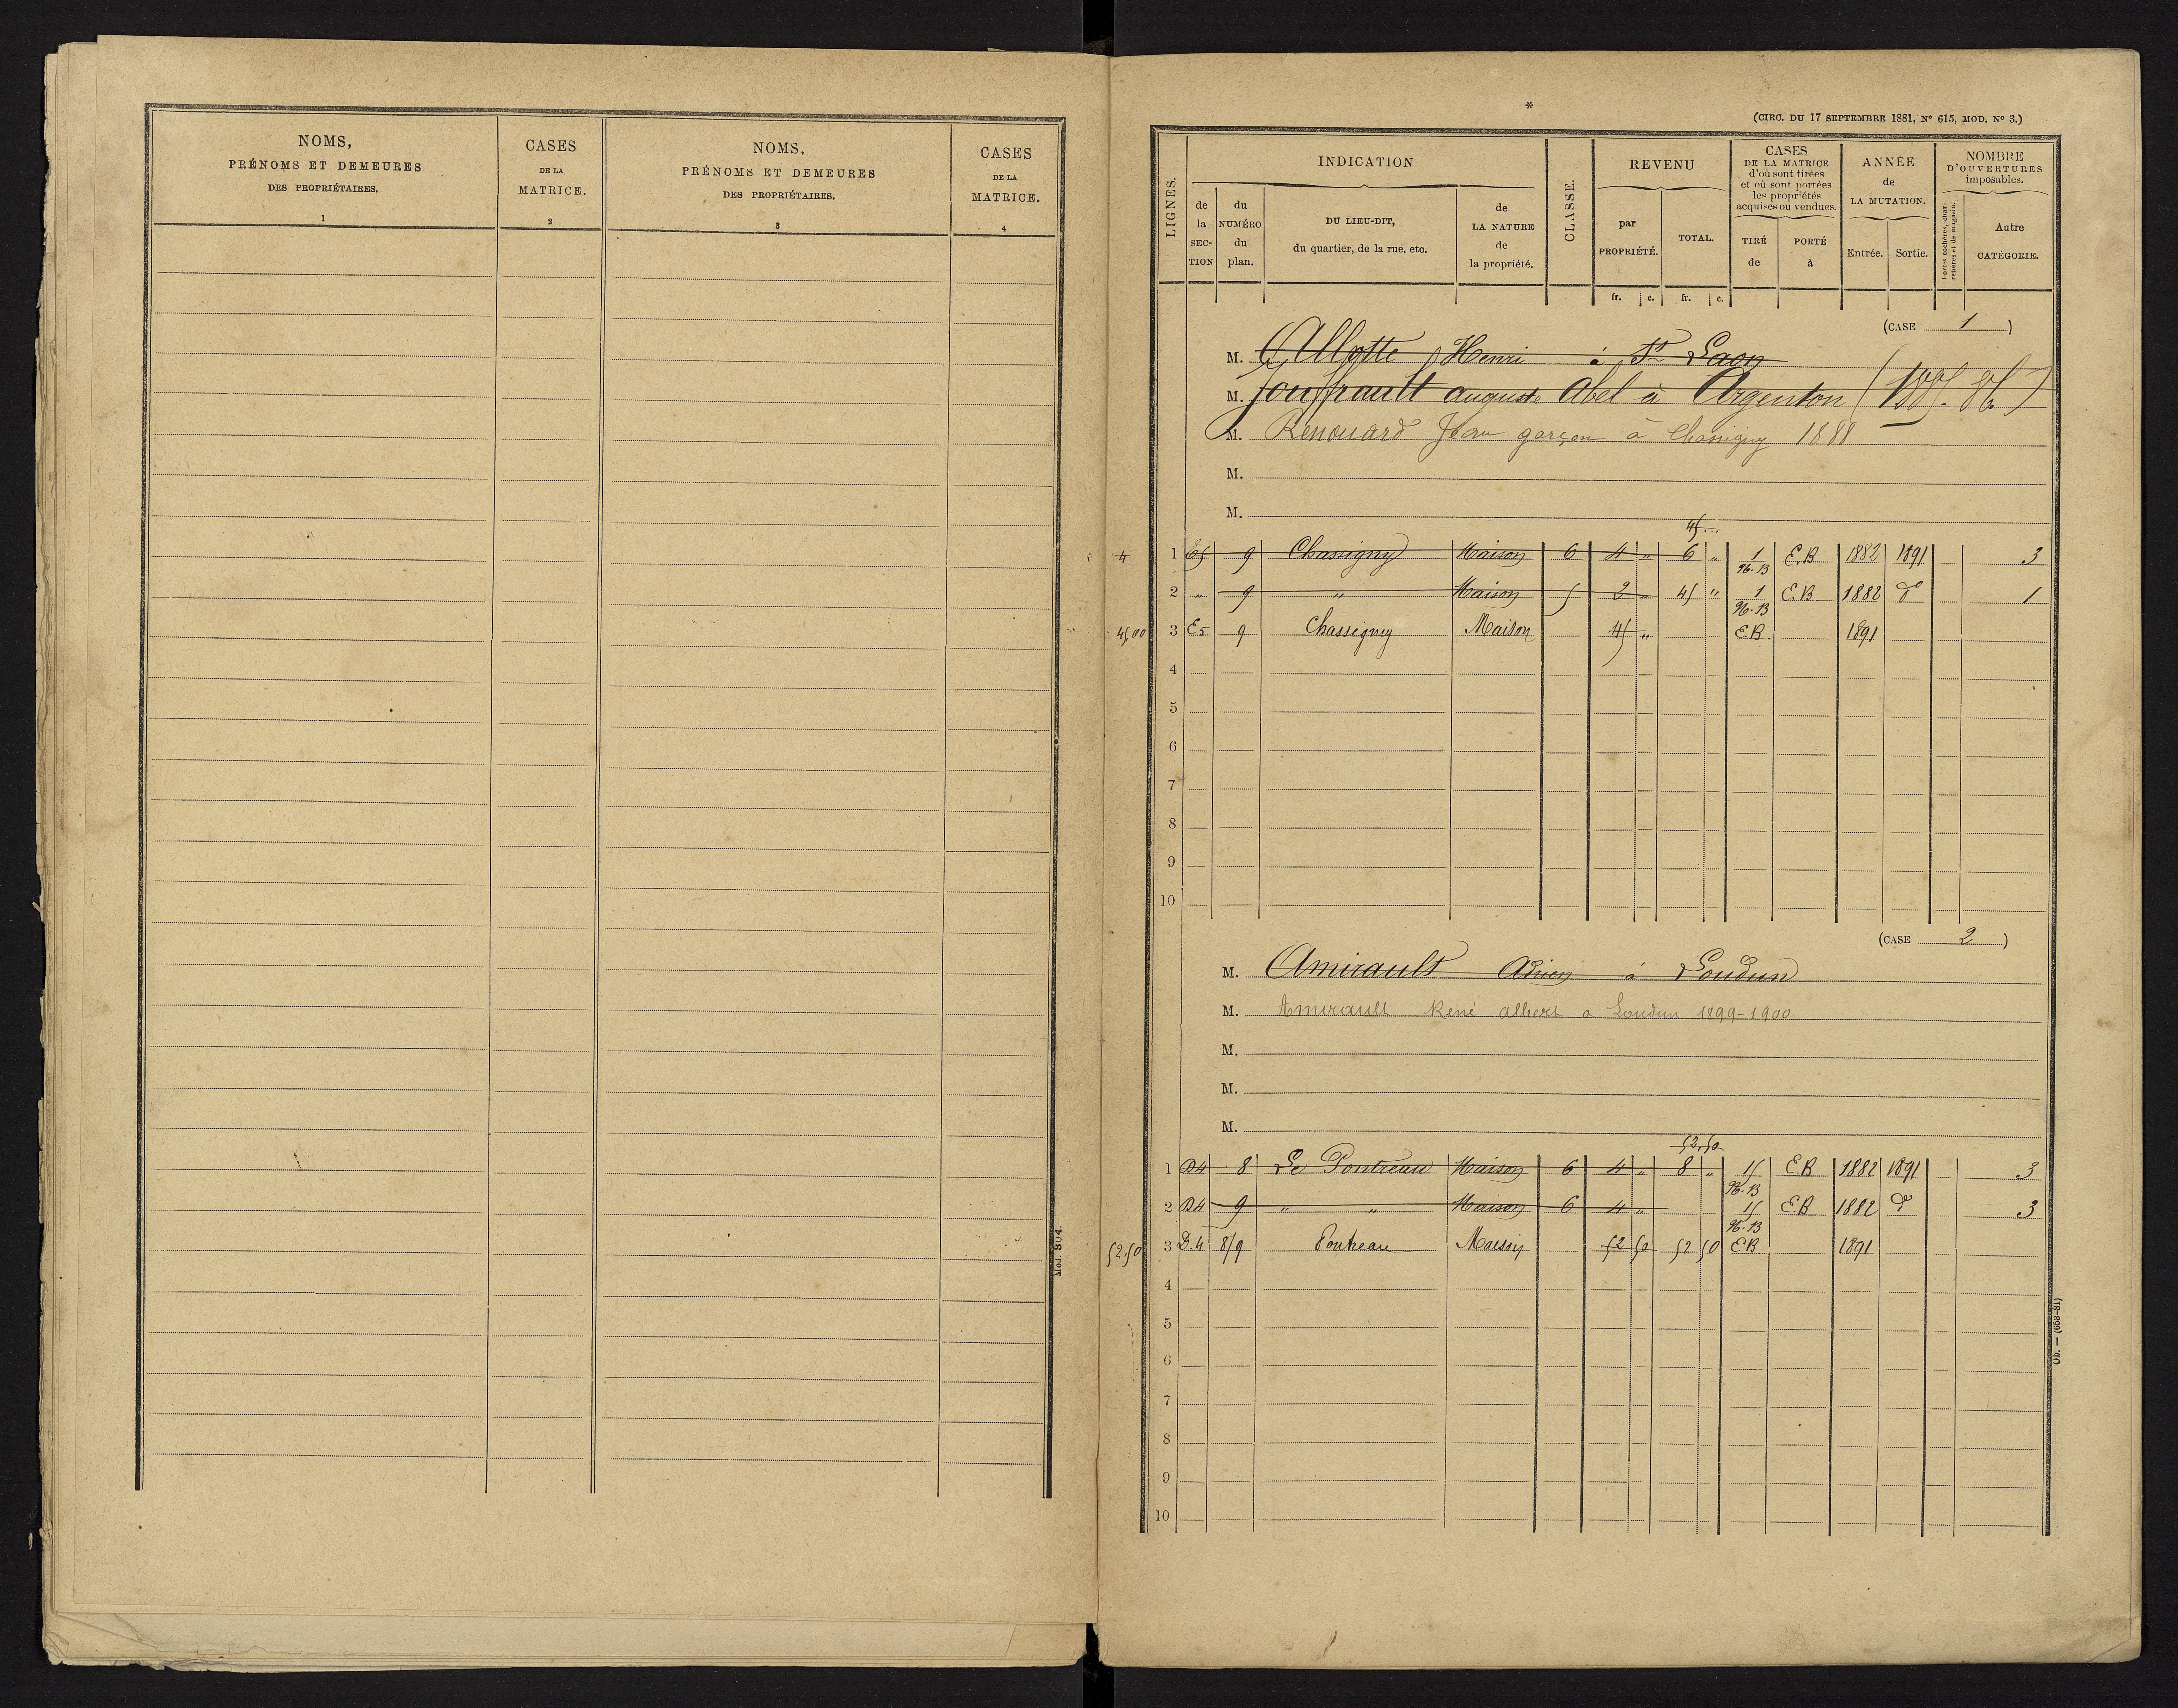 NOMS,
PRÉNOMS ET DEMEURES
DES PROPRIÉTAIRES.
1
CASES
DE LA
MATRICE.
2
NOMS,
PRÉNOMS ET DEMEURES
DES PROPRIÉTAIRES.
3
CASES
DE LA
MATRICE.
4
Mod. 304.
*
(CIRC. DU 17 SEPTEMBRE 1881, Nº 615, MOD. Nº 3.)
LIGNES.
INDICATION
de la SECTION
du NUMÉRO du plan.
DU LIEU-DIT,
du quartier, de la rue, etc.
de LA NATURE de la propriété.
CLASSE.
REVENU
par PROPRIÉTÉ.
TOTAL.
fr. c. fr. c.
CASES
DE LA MATRICE
d'où sont tirées
et où sont portées
les propriétés
acquises ou vendues.
TIRÉ de
PORTÉ à
ANNÉE
de
LA MUTATION.
Entrée. Sortie.
NOMBRE
D'OUVERTURES
imposables.
Portes cochères, charretières et de magasin.
Autre
CATÉGORIE.
(CASE 1)
M. Allotte Henri à St Laon
M. Jouffrault auguste Abel à Argenton
M. Renouard Jean garçon à Chassigny 1888
M.
M.
45
4 1 E5 9 Chassigny Maison 6 4 " 6 " 1 E.B 1882 1891 3
96.B
2 " 9 " Maison 5 2 " 45 " 1 E.B 1882 dº 1
96.B
45,00 3 E5 9 Chassigny Maison 45 " E.B. 1891
4
5
6
7
8
9
10
(CASE 2)
M. Amirault Adrien à Loudun
M. Amirault René albert a Loudun 1899-1900
M.
M.
M.
52,50
1 D4 8 Le Pontreau Maison 6 4 " 8 " 15 E.B 1882 1891 3
96.B
2 D4 9 " " Maison 6 4 " 15 E.B 1882 dº 3
96.B
52.50 3 D.4 8/9 Pontreau Maison 52 50 52 50 E.B 1891
4
5
6
7
8
9
10
Ob. — (653-81)